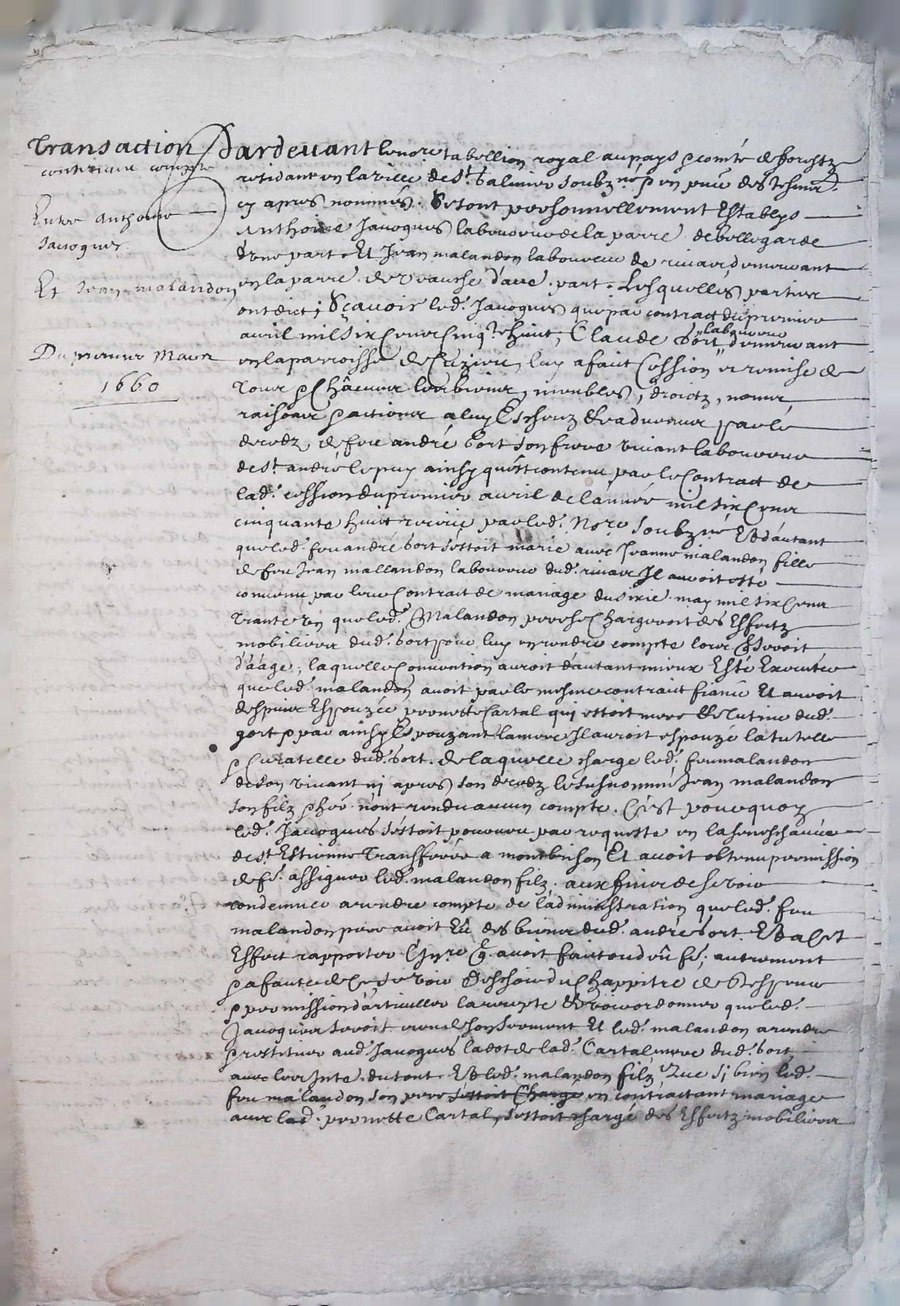 Transaction
contenant compte
Entre Anthoine
Jacoques
Et Jean malandon
Du premier Mars
1660
Pardevant le no.re tabellion royal au pays p comté de foresz
residant en la ville de S.t Galmier soubz.né p en pñce des tesmoings
cy apres nommés. Se sont personnellement establys
Anthoine Jacoques laboureur de la parr.e de bellegarde
d'une part. Et Jean malandon laboureur de rivas demeurant
en la parr.e de veauche d'aue. part. Lesquelles parties
ont dict, Scavoir led. Jacoques que par contract du premier
avril mil six cens cinq.te huict, Claude Gort laboureur demeurant
en la parroisse de Cuzieu, luy a faict Cession et remise de
tous p chacuns les biens, meubles, droictz, noms
raisons p actions a luy Escheuz & advenus par le
decedz de feu andré Gort son frere vivant laboureur
de S.t andré le puy ainsy qu'est contenu par le Contract de
lad. cession du premier avril de l'année mil six cens
cinquante huict receu par led. No.re soubz.né Et d'autant
que led. feu andré Gort s'estoit marié avec Jeanne malandon fille
de feu Jean mallandon laboureur dud. rivas Il auroit esté
convenu par leur Contrait de mariage du may mil six cens
trante que led. Malandon pere se chargeroit des Effectz
mobiliers dud. Gort pour luy en rendre compte lors qu'Il seroit
d'aage, laquelle Convention auroit d'autant mieux Esté Executée
que led. malandon avoit par le mesme contraut fiancé Et auroit
despuis Espouzée pernette Cartal qui estoit mere & tutrice dud.
gort p par ainsy Espouzant la mere Il auroit espouzé la tutelle
p Curatelle dud. Gort. de laquelle charge led. feu malandon
de son vivant ny apres son decedz le susnommé Jean malandon
son filz p her. n'ont rendu aucun compte. C'est pourquoy
led. Jacoques s'estoit pourveu par requeste en la seneschaucée
de S.t Estienne Transferée a montbrison Et avoit obtenu permission
de fe. assigner led. malandon filz. aux fins de se voir
condemner a rendre compte de l'administration que led. feu
malandon pere avoit Eu des biens dud. andré Gort. Et a cet
Effect rapporter l'Inre q. avoit faict ou dû fe, autrement
p a faute de ce se voir descheu du Chappitre de despence
p permission d'articuller la recepte & voir ordonner que led.
Jacoques seroit creu a son serment Et led. malandon a rendre
p restituer aud. Jacoques la dot de lad. Cartal mere dud. Gort
avec les Inte. du tout. Et led. malandon filz Que si bien led.
feu malandon son pere s'estoit Chargé en contractant mariage
avec lad. pernette Cartal, s'estoit chargé des Effectz mobiliers